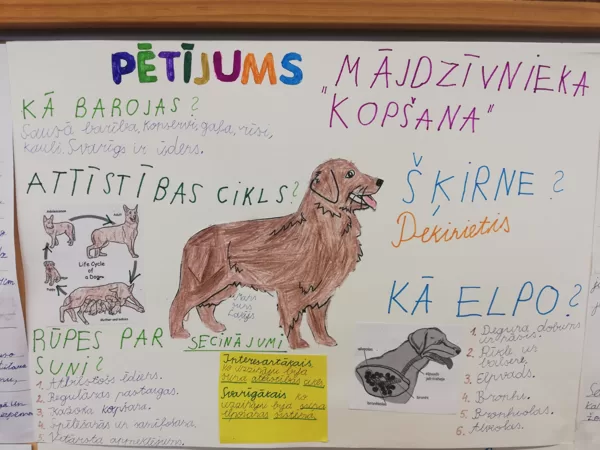 PĒTĪJUMS
"MĀJDZĪVNIEKA
KOPŠANA"
KĀ BAROJAS?
Sausā barība, konservi, gaļa, rīsi,
kauli. Svarīgs ir ūdens.
ATTĪSTĪBAS CIKLS?
Life Cycle
of a Dog
ŠĶIRNE?
KĀ ELPO?
1. Deguna dobums
2. Rīkle un
3. Elpvads.
4. Bronhi.
5. Bronhiolas.
6. Alveolas.
RŪPES PAR
SUNI?
1. Atbilstošs ēdiens.
2. Regulāras pastaigas.
3. Kažoka kopšana.
4. Spēlēšanās un
5.
SECINĀJUMI
Interesantākais,
ko uzzināju bija
suņa attīstības cikls.
Svarīgākais ko
uzzināju bija suņa
elpošanas sistēma.